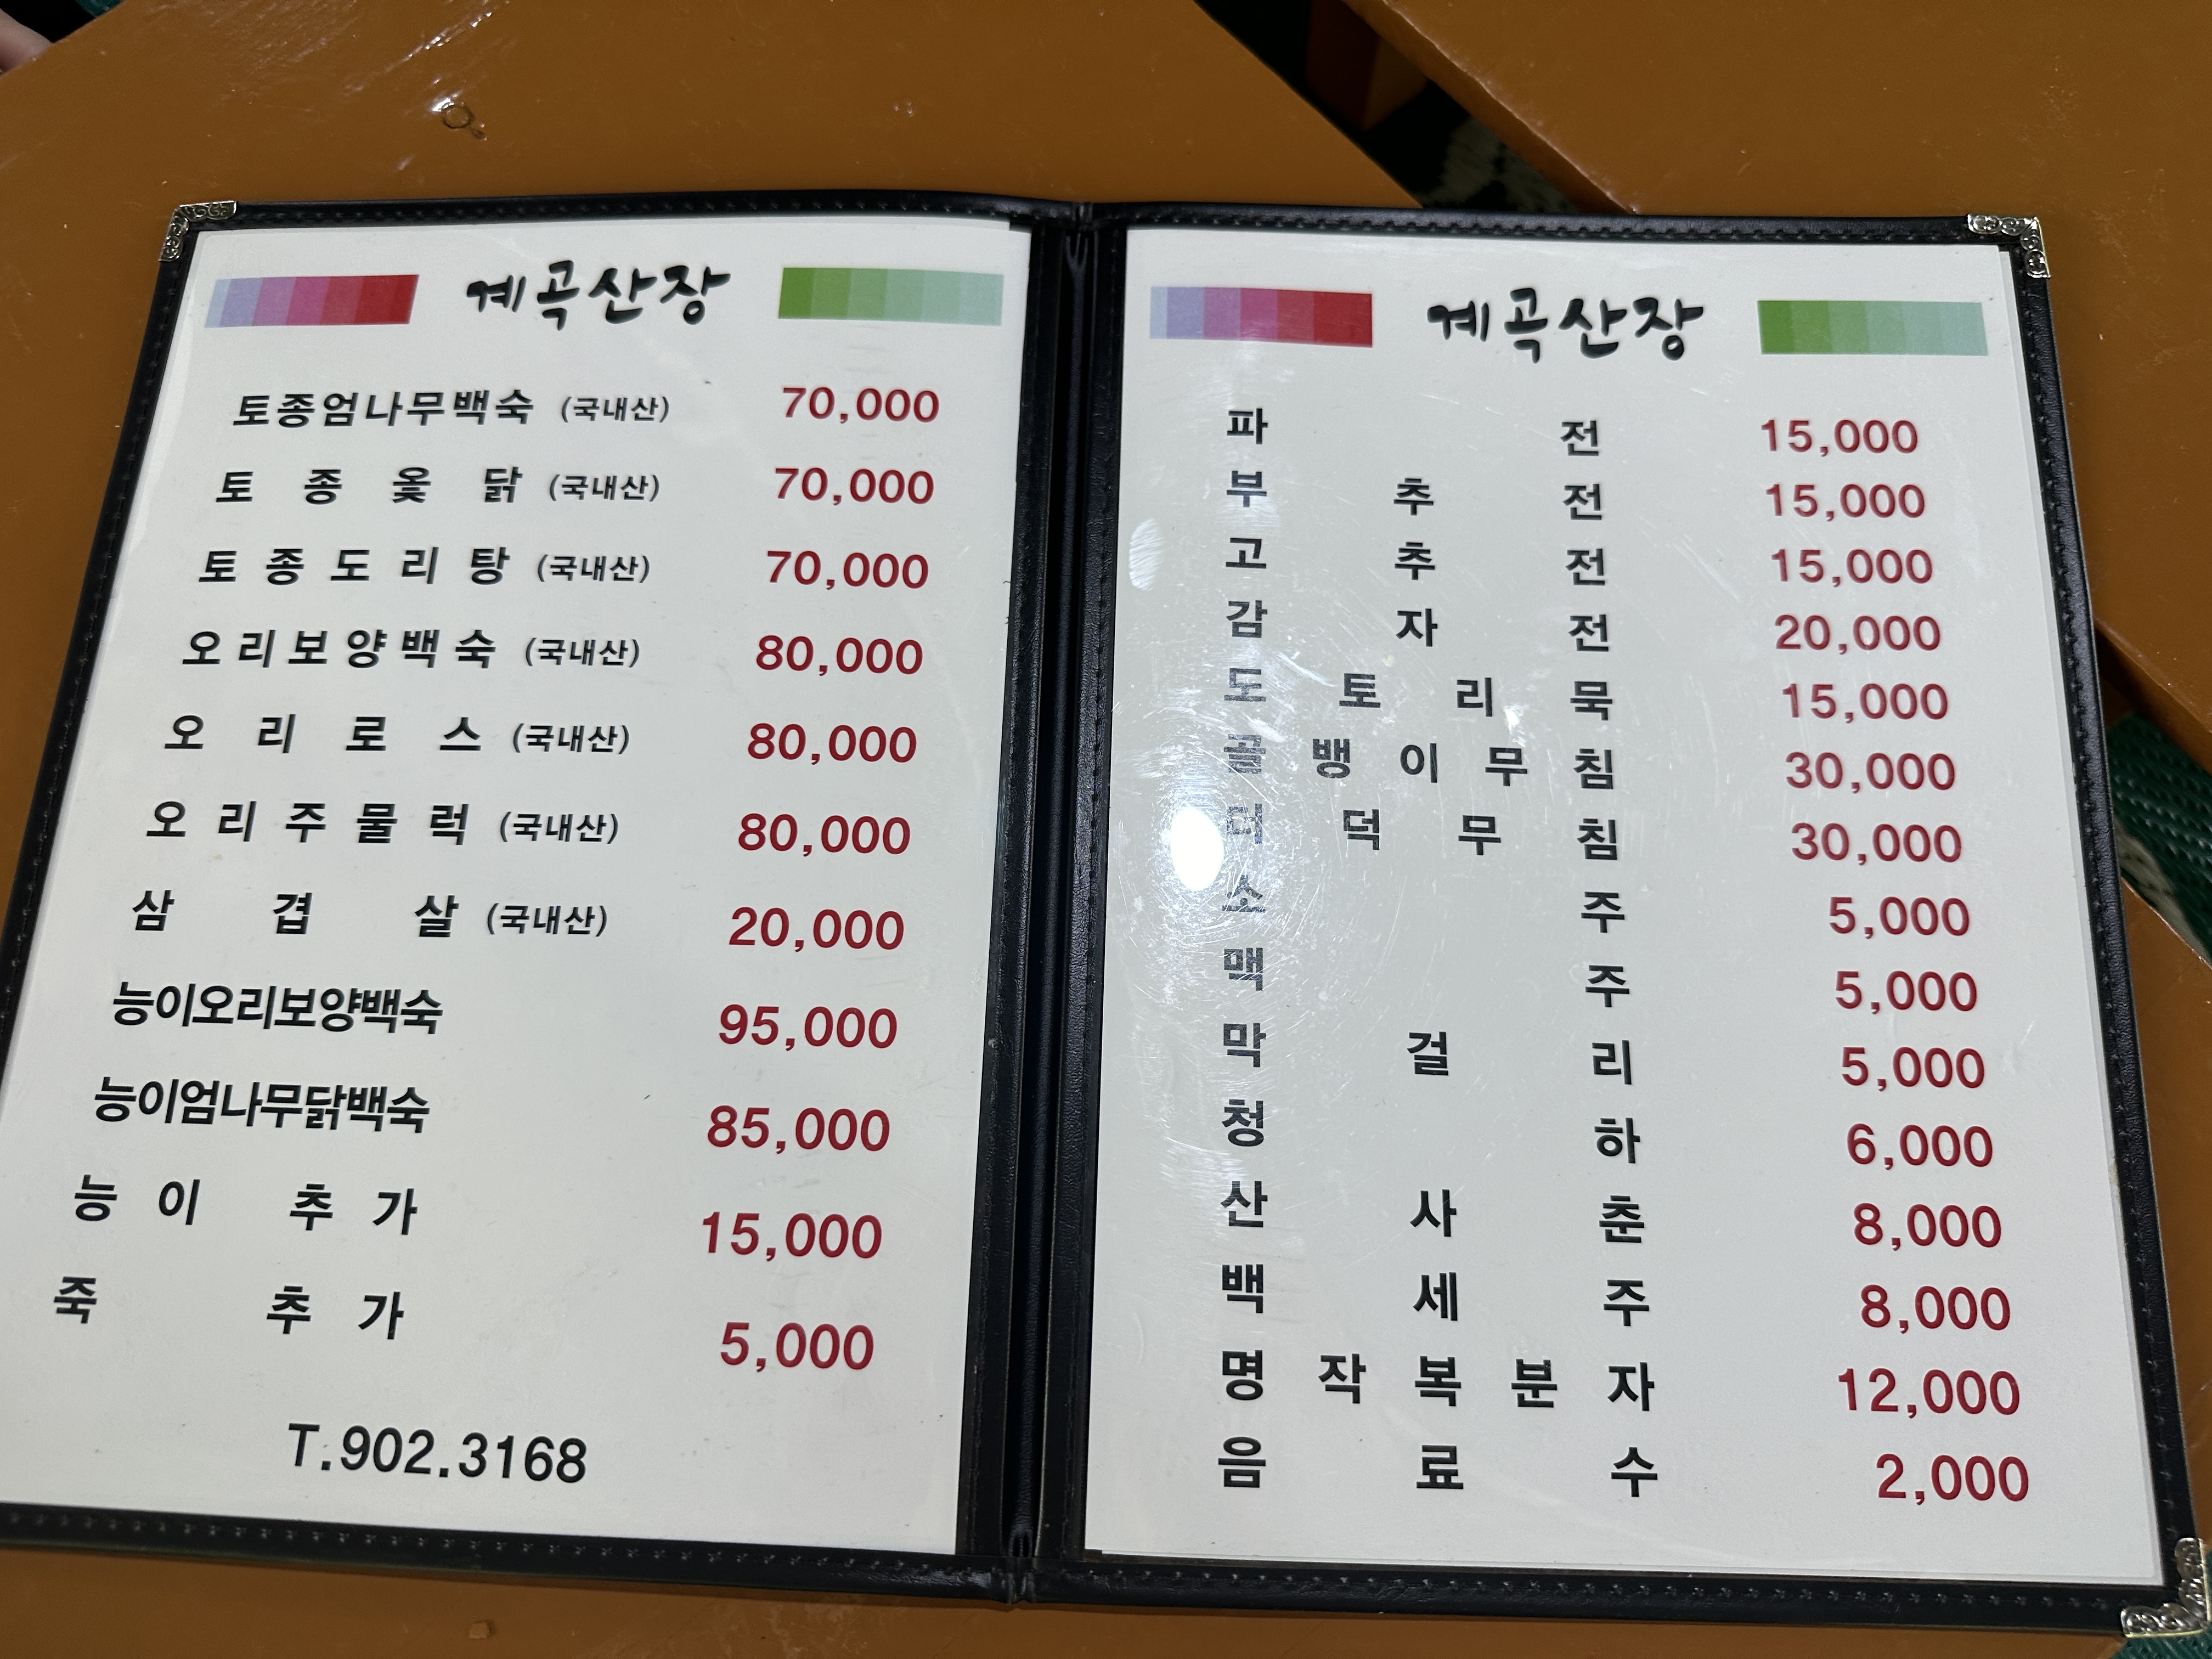 계곡산장
토종엄나무백숙 (국내산) 70,000
토종옻닭 (국내산) 70,000
토종도리탕 (국내산) 70,000
오리보양백숙 (국내산) 80,000
오리로스 (국내산) 80,000
오리주물럭 (국내산) 80,000
삼겹살 (국내산) 20,000
능이오리보양백숙 95,000
능이엄나무닭백숙 85,000
능이 추가 15,000
죽 추가 5,000
T.902.3168
계곡산장
파전 15,000
부추전 15,000
고추전 15,000
감자전 20,000
도토리묵 15,000
골뱅이무침 30,000
더덕무침 30,000
소주 5,000
맥주 5,000
막걸리 5,000
청하 6,000
산사춘 8,000
백세주 8,000
명작복분자 12,000
음료수 2,000